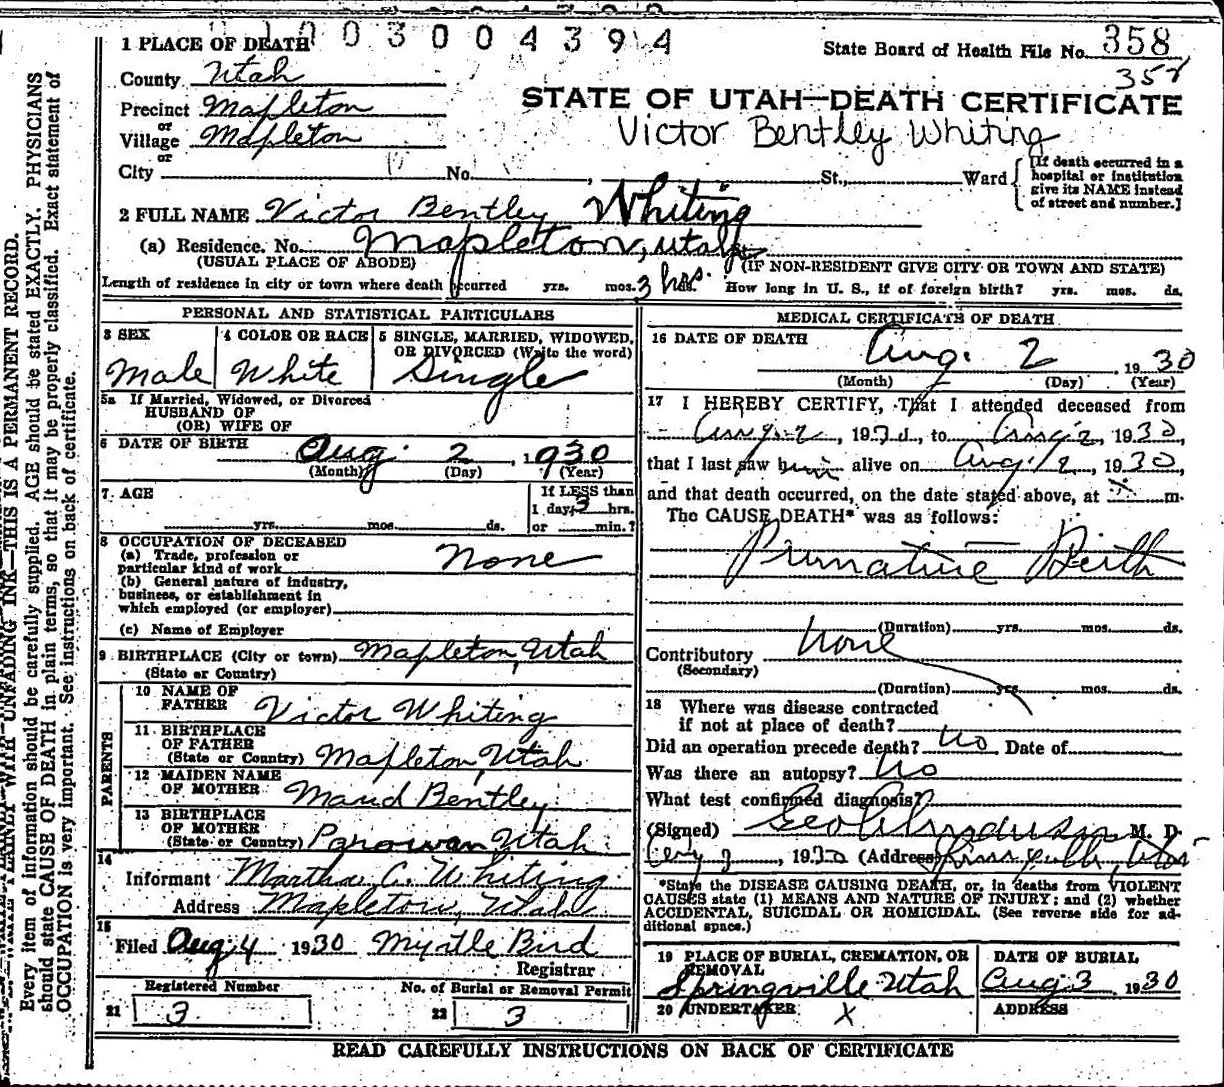 1 PLACE OF DEATH 1003004394
State Board of Health File No. 358
358
County Utah
Precinct Mapleton
or
Village Mapleton
or
City No. , St., Ward
STATE OF UTAH—DEATH CERTIFICATE
Victor Bentley Whiting
[If death occurred in a
hospital or institution
give its NAME instead
of street and number.]
2 FULL NAME Victor Bentley Whiting
(a) Residence. No. Mapleton, Utah
(USUAL PLACE OF ABODE) (IF NON-RESIDENT GIVE CITY OR TOWN AND STATE)
Length of residence in city or town where death occurred yrs. mos. 3 hrs. How long in U. S., if of foreign birth? yrs. mos. ds.
PERSONAL AND STATISTICAL PARTICULARS
3 SEX
Male
4 COLOR OR RACE
White
5 SINGLE, MARRIED, WIDOWED,
OR DIVORCED (Write the word)
Single
5a If Married, Widowed, or Divorced
HUSBAND OF
(OR) WIFE OF
6 DATE OF BIRTH Aug. 2, 1930
(Month) (Day) (Year)
7. AGE
yrs. mos. ds.
If LESS than
1 day, 3 hrs.
or min.?
8 OCCUPATION OF DECEASED
(a) Trade, profession or
particular kind of work None
(b) General nature of industry,
business, or establishment in
which employed (or employer)
(c) Name of Employer
9 BIRTHPLACE (City or town) Mapleton, Utah
(State or Country)
PARENTS
10 NAME OF
FATHER Victor Whiting
11 BIRTHPLACE
OF FATHER
(State or Country) Mapleton, Utah
12 MAIDEN NAME
OF MOTHER Maud Bentley
13 BIRTHPLACE
OF MOTHER
(State or Country) Parowan, Utah
14
Informant Martha C. Whiting
Address Mapleton, Utah
15
Filed Aug 4 1930 Myrtle Bird
Registrar
Registered Number
21 3
No. of Burial or Removal Permit
22 3
MEDICAL CERTIFICATE OF DEATH
16 DATE OF DEATH Aug. 2, 1930
(Month) (Day) (Year)
17 I HEREBY CERTIFY, That I attended deceased from
Aug 2, 1930, to Aug 2, 1930,
that I last saw him alive on Aug 2, 1930,
and that death occurred, on the date stated above, at m.
The CAUSE DEATH* was as follows:
Premature Birth
(Duration) yrs. mos. ds.
Contributory None
(Secondary)
(Duration) yrs. mos. ds.
18 Where was disease contracted
if not at place of death?
Did an operation precede death? No Date of
Was there an autopsy? No
What test confirmed diagnosis?
(Signed) Geo M. D.
1930 (Address) Utah
*State the DISEASE CAUSING DEATH, or, in deaths from VIOLENT
CAUSES state (1) MEANS AND NATURE OF INJURY: and (2) whether
ACCIDENTAL, SUICIDAL OR HOMICIDAL. (See reverse side for ad-
ditional space.)
19 PLACE OF BURIAL, CREMATION, OR
REMOVAL
Springville Utah
DATE OF BURIAL
Aug 3, 1930
20 UNDERTAKER X
ADDRESS
READ CAREFULLY INSTRUCTIONS ON BACK OF CERTIFICATE
WRITE PLAINLY WITH UNFADING INK—THIS IS A PERMANENT RECORD.
Every item of information should be carefully supplied. AGE should be stated EXACTLY. PHYSICIANS
should state CAUSE OF DEATH in plain terms, so that it may be properly classified. Exact statement of
OCCUPATION is very important. See instructions on back of certificate.